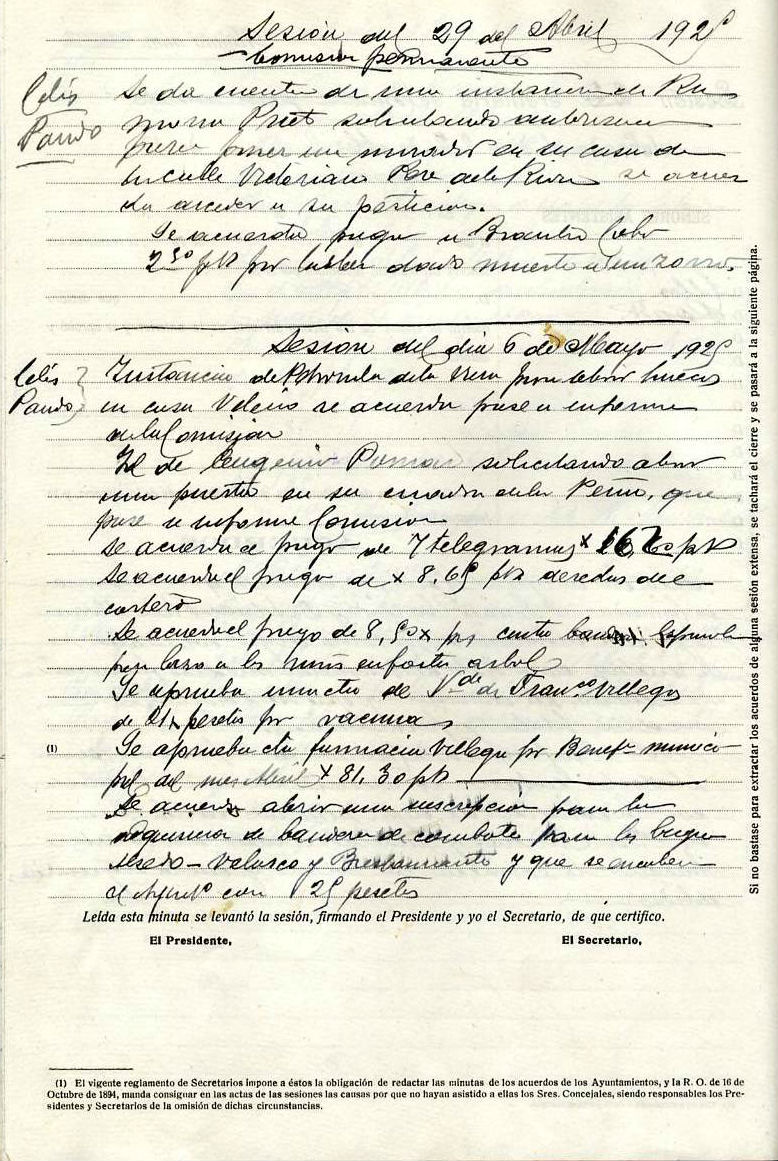 Sesión del 29 de Abril 1925
Comisión permanente
Celis
Pando
Se da cuenta de una instancia de Ra
mona Priet solicitando autorización
para poner un mirador en su casa de
la calle Victoriano Pere de la Riva se acuer
da acceder a su petición.
Se acuerda pagar a Braulio Cobo
2,50 pts por haber dado muerte a un zorro.
Sesión del día 6 de Mayo 1925
Celis
Pando
Instancia de de la Vera para abrir huecos
en casa Velarde se acuerda pase a informe
de la Comisión
Id de Eugenio Roman solicitando abrir
una puerta en su cuadra de la Peña, que
pase a informe Comisión
Se acuerda el pago de 7 telegramas x pts
Se acuerda el pago de x 8,65 pts derechos de
cartero
Se acuerda el pago de 8,50 x pts cuatro banderas Española
para lazo a los niños en fiesta arbol
Se aprueba una cta de Vda de Franco. Villegas
de 21 x pesetas por vacunas
(1)
Se aprueba cta farmacia Villegas por Benefa munici
pal del mes Abril x 81,30 pts
Se acuerda abrir una suscripción para la
de bandera de combate para los buques
Alsedo - Velasco y y que se encabece
el Aynto con 25 pesetas
Leída esta minuta se levantó la sesión, firmando el Presidente y yo el Secretario, de que certifico.
El Presidente,
El Secretario,
(1) El vigente reglamento de Secretarios impone a éstos la obligación de redactar las minutas de los acuerdos de los Ayuntamientos, y la R. O. de 16 de
Octubre de 1894, manda consignar en las actas de las sesiones las causas por que no hayan asistido a ellas los Sres. Concejales, siendo responsables los Pre-
sidentes y Secretarios de la omisión de dichas circunstancias.
Si no bastase para extractar los acuerdos de alguna sesión extensa, se tachará el cierre y se pasará a la siguiente página.